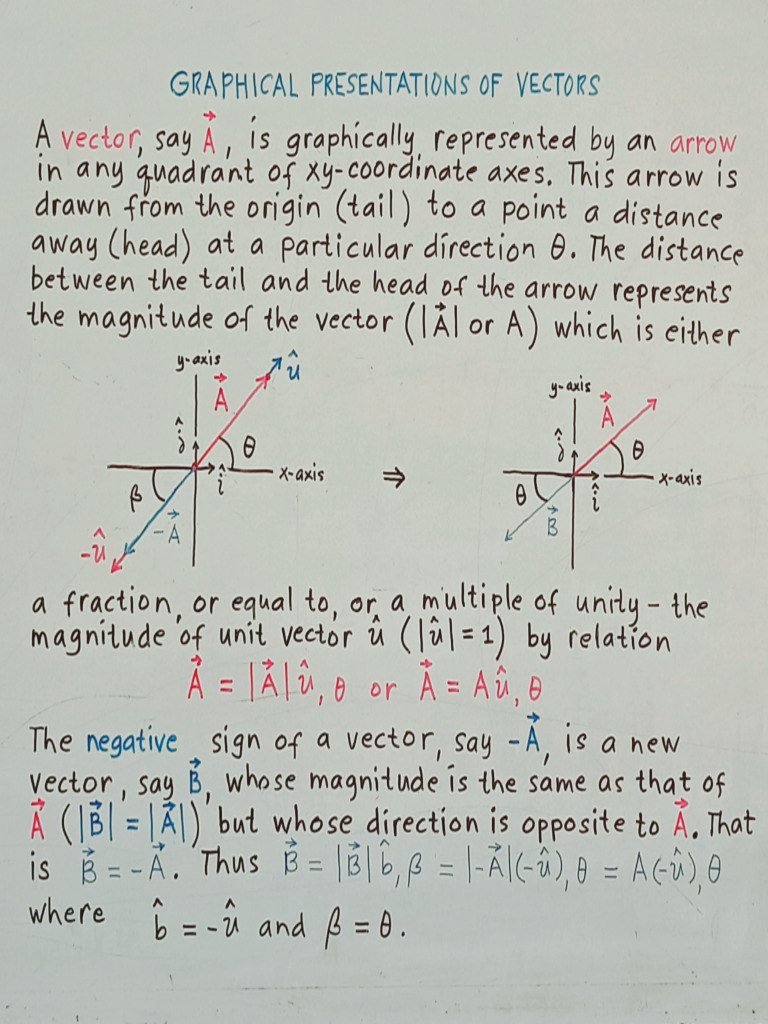 GRAPHICAL PRESENTATIONS OF VECTORS
A vector, say A⃗, is graphically represented by an arrow
in any quadrant of xy-coordinate axes. This arrow is
drawn from the origin (tail) to a point a distance
away (head) at a particular direction θ. The distance
between the tail and the head of the arrow represents
the magnitude of the vector (|A⃗| or A) which is either
y-axis
û
A⃗
ĵ
θ
î
x-axis
β
-A⃗
-û
⇒
y-axis
A⃗
ĵ
θ
x-axis
θ
î
B⃗
a fraction, or equal to, or a multiple of unity – the
magnitude of unit vector û (|û| = 1) by relation
A⃗ = |A⃗|û, θ or A⃗ = Aû, θ
The negative sign of a vector, say -A⃗, is a new
vector, say B⃗, whose magnitude is the same as that of
A⃗ (|B⃗| = |A⃗|) but whose direction is opposite to A⃗. That
is B⃗ = -A⃗. Thus B⃗ = |B⃗|b̂, β = |-A⃗|(-û), θ = A(-û), θ
where b̂ = -û and β = θ.